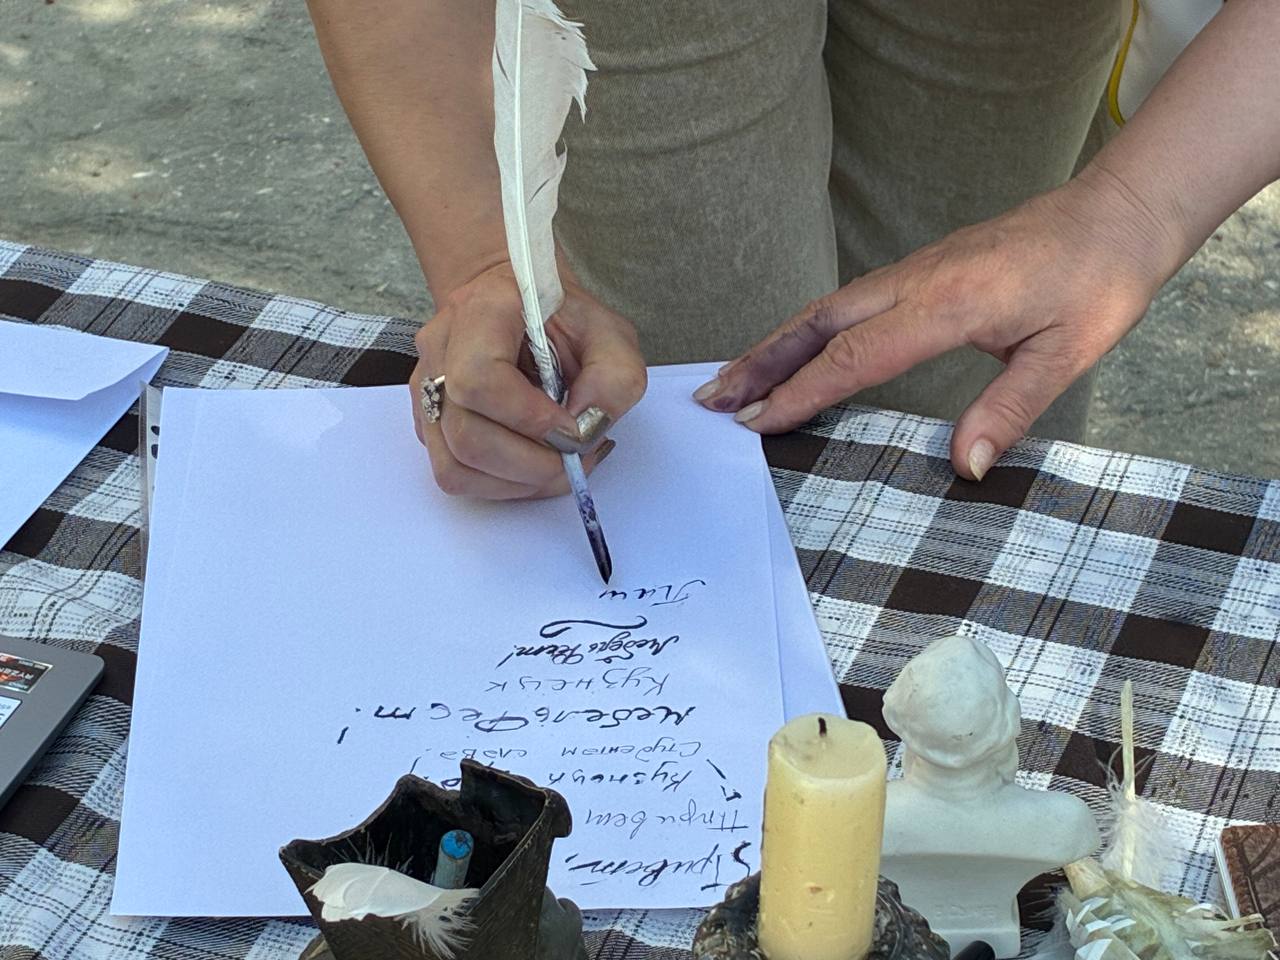 Привет,
Привет
Кузнецк
Студентам слава!
МебельФест!
Кузнецк
Мебель Фест!
Пиш